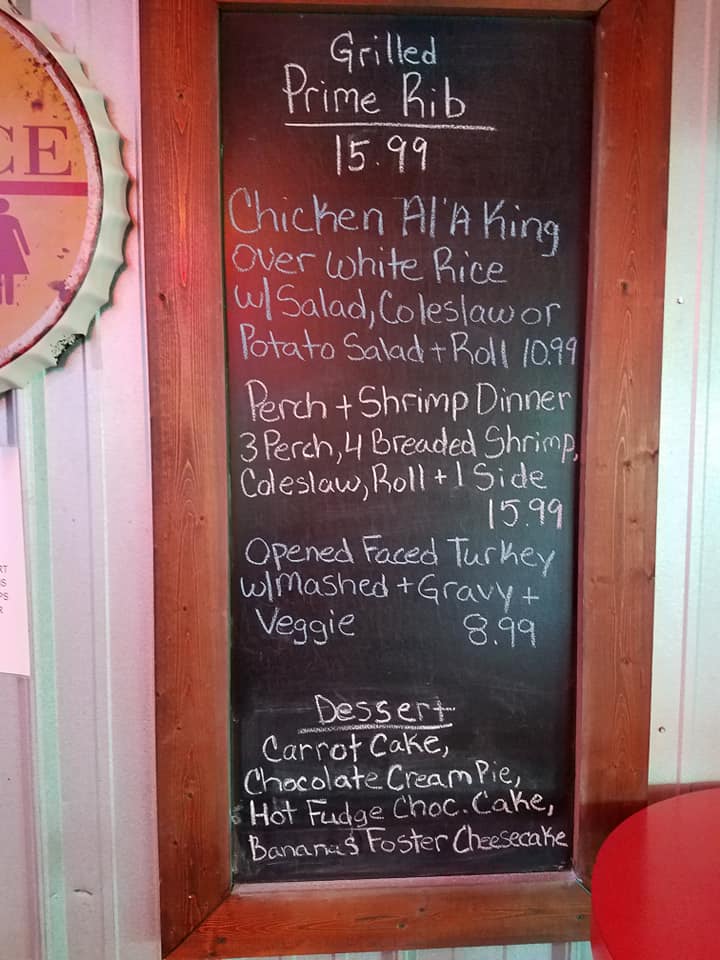 CE
Grilled
Prime Rib
15.99
Chicken Al'A King
over white Rice
w/ Salad, Coleslaw or
Potato Salad + Roll 10.99
Perch + Shrimp Dinner
3 Perch, 4 Breaded Shrimp,
Coleslaw, Roll + 1 Side
15.99
Opened Faced Turkey
w/ Mashed + Gravy +
Veggie 8.99
Dessert
Carrot Cake,
Chocolate Cream Pie,
Hot Fudge Choc. Cake,
Bananas Foster Cheesecake